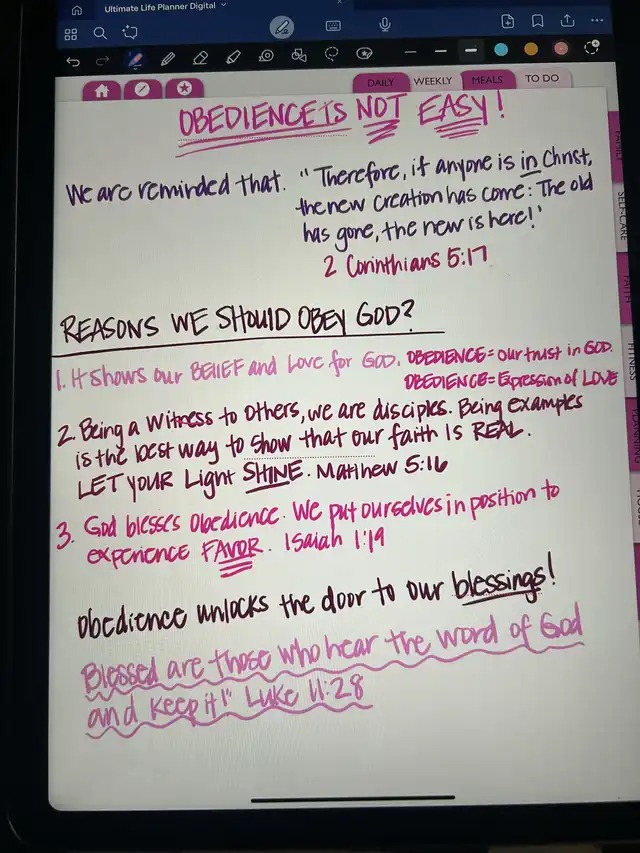 Ultimate Life Planner Digital
DAILY WEEKLY MEALS TO DO
OBEDIENCE IS NOT EASY!
We are reminded that. "Therefore, if anyone is in Christ,
the new creation has come: The old
has gone, the new is here!'
2 Corinthians 5:17
REASONS WE SHOULD OBEY GOD?
1. It shows our BELIEF and Love for GOD. OBEDIENCE = our trust in GOD.
OBEDIENCE = Expression of LOVE
2. Being a Witness to others, we are disciples. Being examples
is the best way to show that our faith IS REAL.
LET YOUR Light SHINE. Matthew 5:16
3. God blesses obedience. We put ourselves in position to
experience FAVOR. Isaiah 1:19
Obedience unlocks the door to our blessings!
Blessed are those who hear the word of God
and keep it!" Luke 11:28
FAMILY
SELF-CARE
FAITH
FITNESS